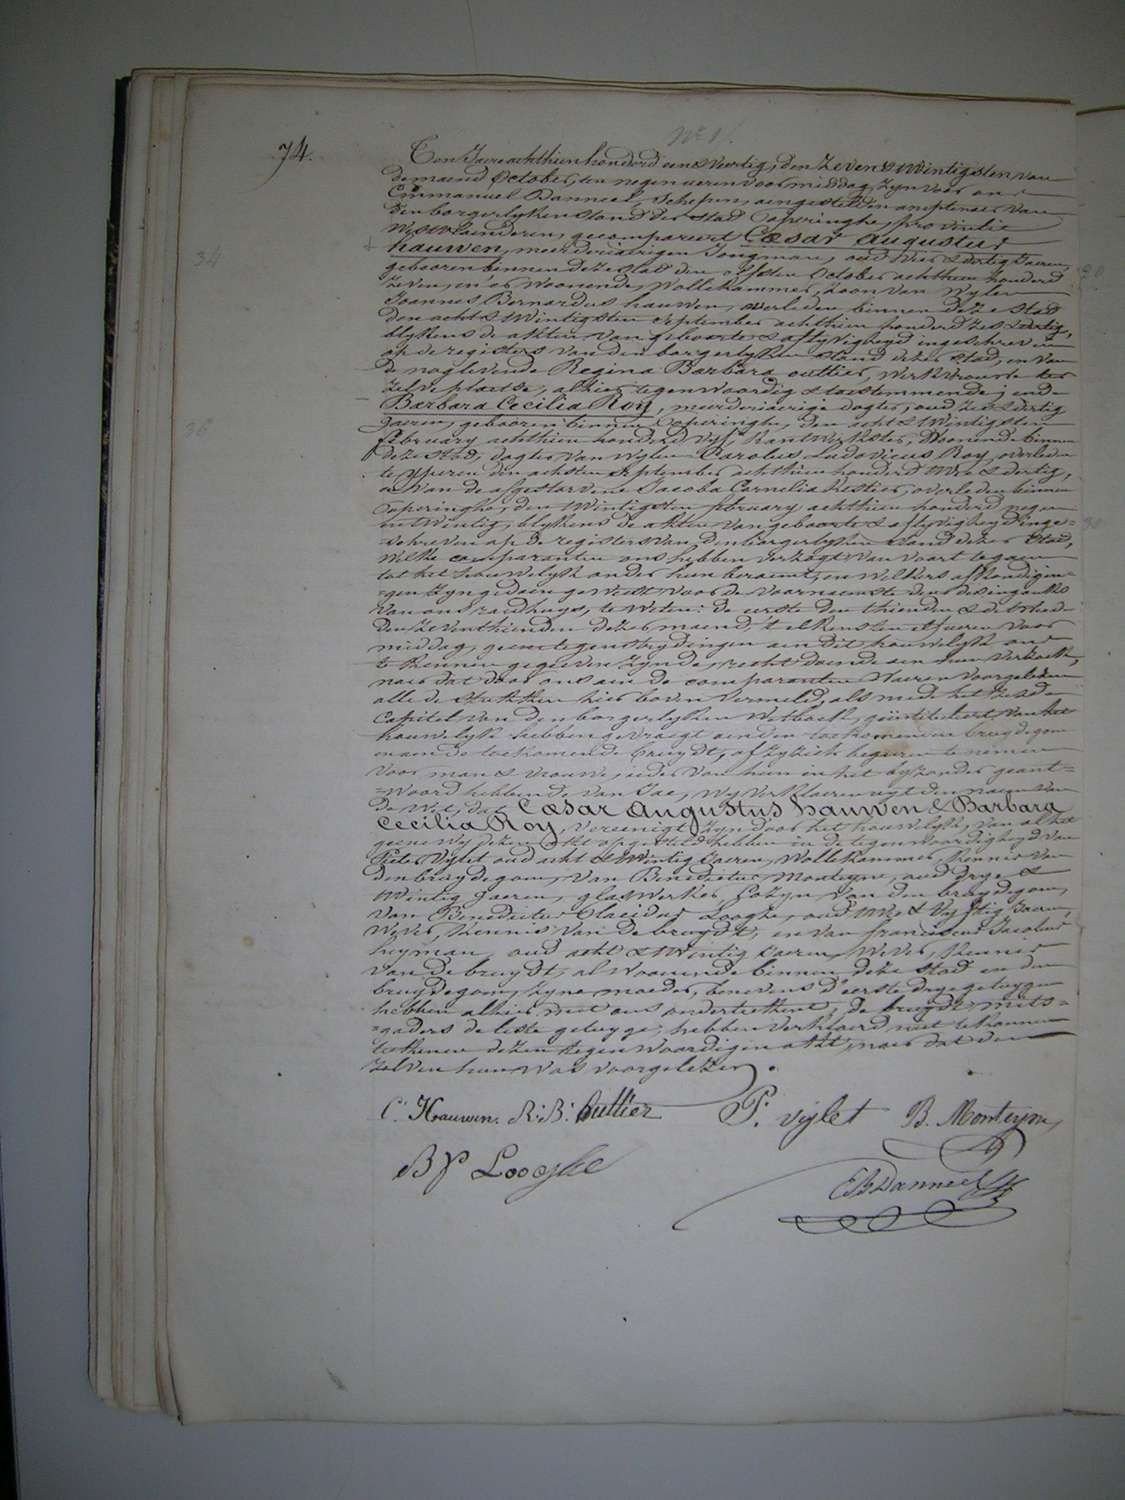 74.
Ten Jaere achthien honderd een & veertig, den zeven & twintigsten van
de maend October, ten negen ueren voor middag, zyn voor ons
Emmanuel Banneel, Schepen, aengestelden amptenaer van
den borgerlyken stand der Stad Poperinghe, provintie
Westvlaenderen, gecompareert Cæsar Augustus
hauwen, meerderjaerigen Jongman, oud vier & dertig Jaeren,
gebooren binnen deze stad den October achthien honderd
zeven, en er woonende, Wollekammer, zoon van wylen
Joannes Bernardus hauwen, overleden binnen deze stad
den acht & twintigsten September achthien honderd zes & dertig,
blykens de akten van geboorte & aflyvigheyd ingeschreven
op de registers van den borgerlyken stand dezer stad, en van
de noglevende Regina Barbara outtier, Werkvrouwe ter
zelve plaetse, alhier tegenwoordig & toestemmende; ende
Barbara Cecilia Roy, meerderjaerige dogter, oud zes & dertig
Jaeren, gebooren binnen Poperinghe, den acht & twintigsten
february achthien honderd vyf, Kantwerkster, Woonende binnen
deze stad, dogter van wylen Carolus Ludovicus Roy, overleden
te yperen den achsten September achthien honderd drie & dertig,
en van de afgestorvene Jacoba Cornelia overleden binnen
Poperinghe, den twintigsten february achthien honderd negen
en twintig, blykens de akten van geboorte & aflyvigheyd inge=
=schreven op de registers van den borgerlyken stand dezer stad,
welke comparanten ons hebben verzogt van voort te gaen
tot het houwelyk onder hun beraemt, en welkers afkondigin=
=gen zyn gedaen geweest voor de voornaemste deur des ingankx
van ons raedhuys, te weten: de eerste den thienden & de tweede
den zeventhienden dezer maend, t'elkens ten elf ueren voor
middag, geene tegenstrydingen aen dit houwelyk ons
te kennen gegeeven zynde, recht doende aen hun verzoek,
naer dat door ons aen de comparanten waeren voorgelezen
alle de stukken hier boven vermeld, als mede het zesde
Capitel van den borgerlyken Wetboek, geïntituleert, van het
houwelyk hebben gevraegt aen den toekomenden bruydegom
en aen de toekomende bruydt, of zy zich begeeren te nemen
voor man & vrouwe, ieder van hun in het byzonder geant=
=woord hebbende van Jae, wy verklaeren uyt den naem van
de wet, dat Cæsar Augustus hauwen & Barbara
Cecilia Roy, vereenigt zyn door het houwelyk, van al het
geene wy dezen akt opgesteld hebben in de tegenwoordigheyd van
Pieter Vijlet oud acht & twintig Jaeren, Wollekammer, Kennis van
den bruydegom, van Benedictus Monteyne, oud drye &
twintig Jaeren, glaswerker, Cozyn van den bruydegom,
van Benedictus Placidus Looghe, oud & vyftig Jaeren,
Wever, Kennis van de bruydt, en van franciscus Jacobus
heyman, oud acht & twintig Jaeren, Wever, Kennis
van de bruydt, al woonende binnen deze stad en den
bruydegom, zyne moeder, benevens d'eerste drye getuygen
hebben alhier met ons onderteekent; de bruydt, mits=
=gaders de leste getuyge, hebben verklaerd niet te konnen
teekenen dezen tegenwoordigen akt, naer dat den
zelven hun was voorgelezen.
C. Hauwen. R: B: Outtier P. Vijlet B. Monteyne
B P Looghe
EBanneel